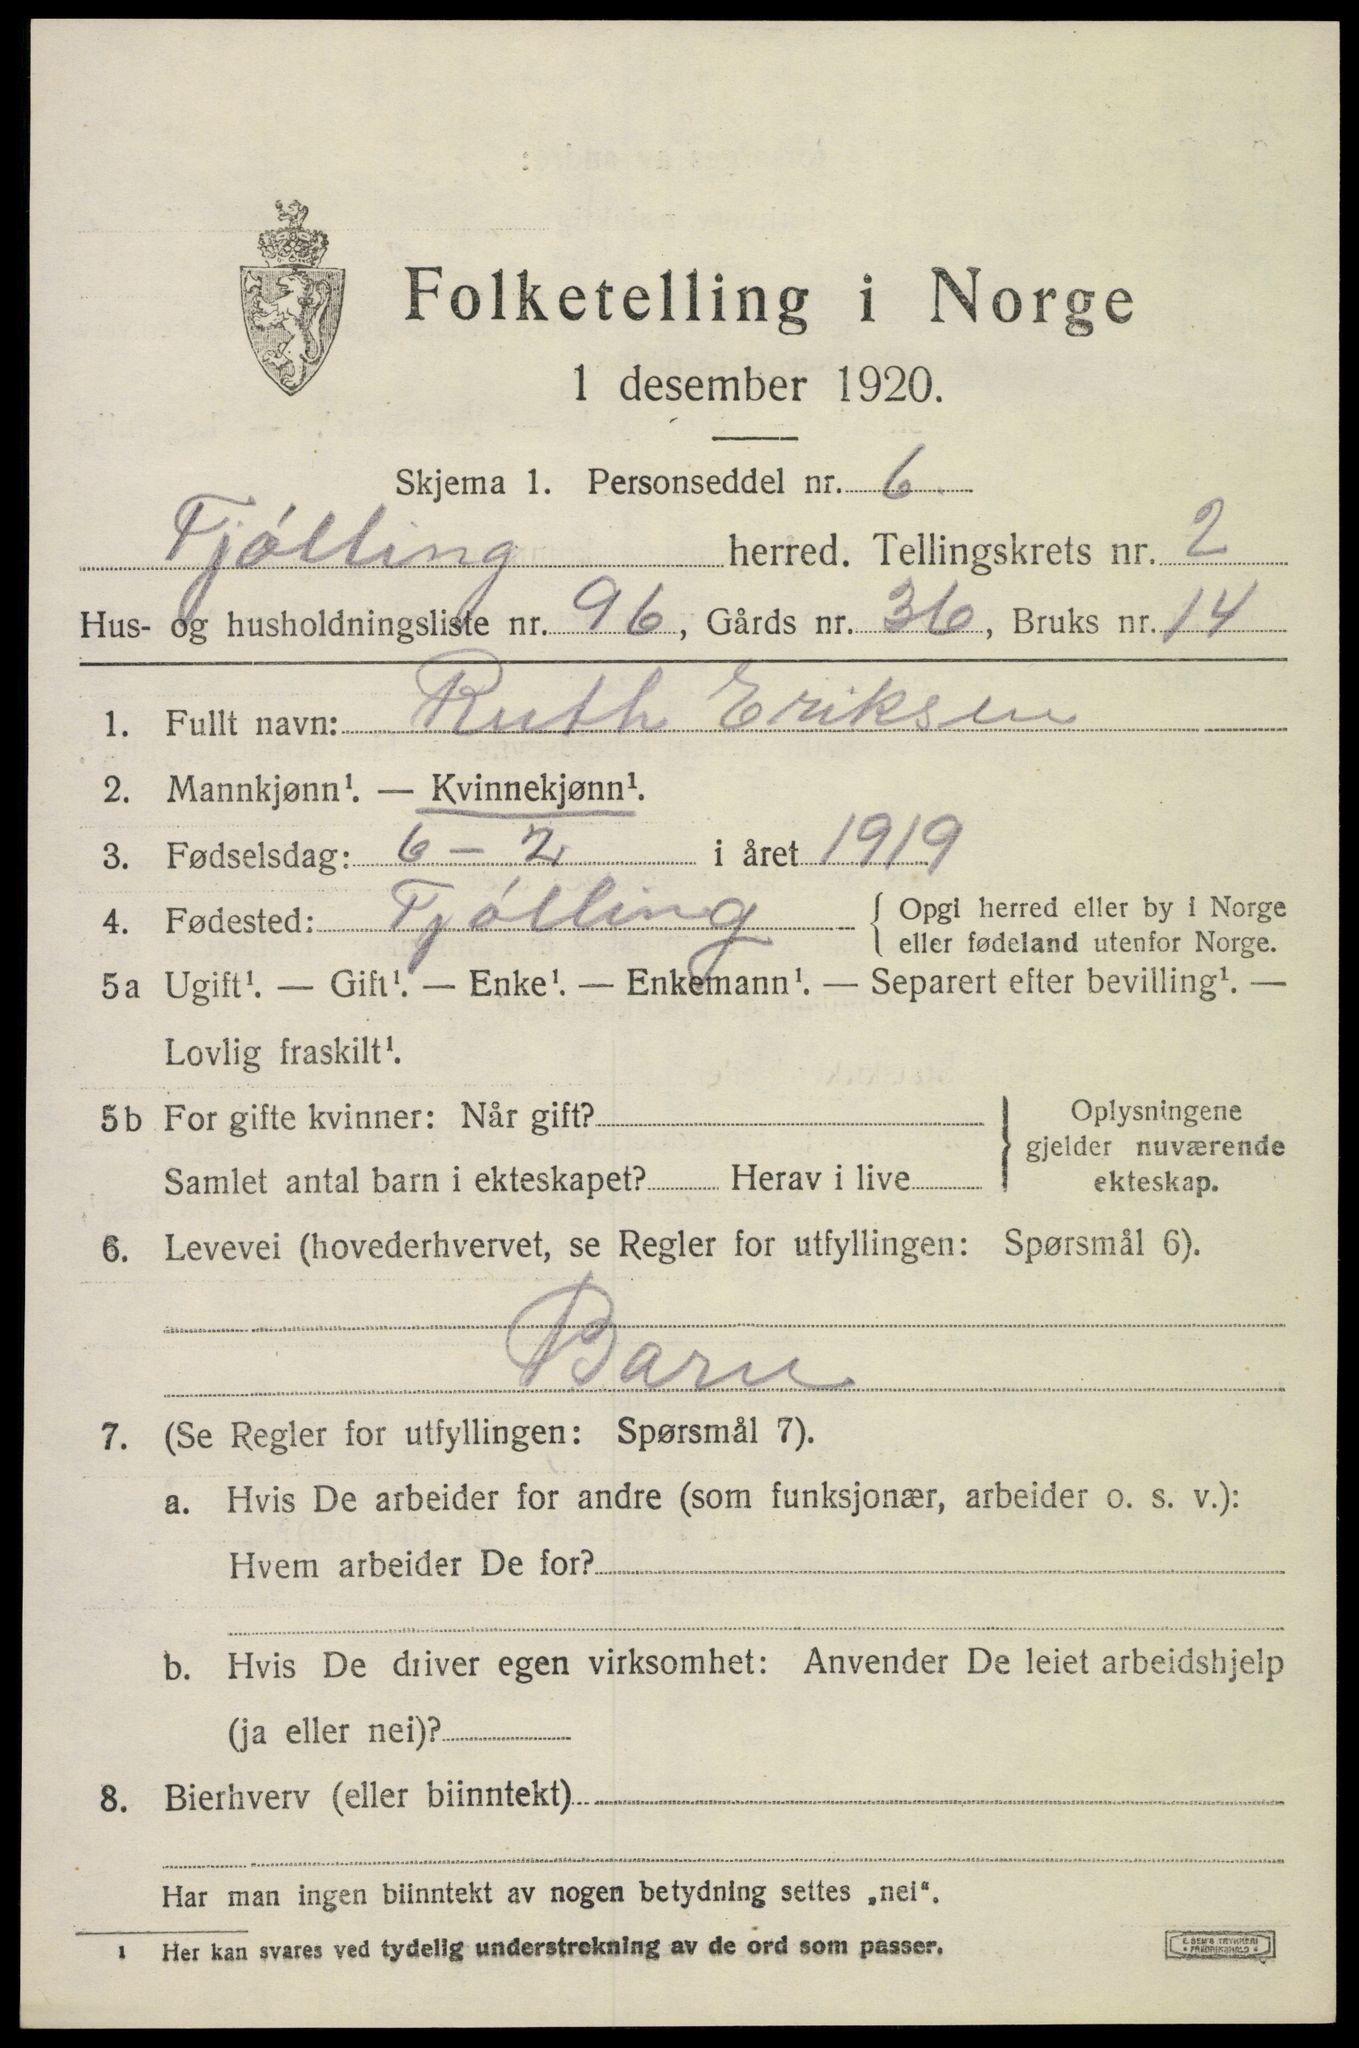 Folketelling i Norge
1 desember 1920.
Skjema 1. Personseddel nr. 6.
Tjölling herred. Tellingskrets nr. 2
Hus- og husholdningsliste nr. 96, Gårds nr. 36, Bruks nr. 14
1. Fullt navn: Ruth Eriksen
2. Mannkjønn¹. — Kvinnekjønn¹.
3. Fødselsdag: 6 - 2 i året 1919
4. Fødested: Tjölling { Opgi herred eller by i Norge
eller fødeland utenfor Norge.
5a Ugift¹. — Gift¹. — Enke¹. — Enkemann¹. — Separert efter bevilling¹. —
Lovlig fraskilt¹.
5b For gifte kvinner: Når gift?
Samlet antal barn i ekteskapet? Herav i live
} Oplysningene
gjelder nuværende
ekteskap.
6. Levevei (hovederhvervet, se Regler for utfyllingen: Spørsmål 6).
Barn
7. (Se Regler for utfyllingen: Spørsmål 7).
a. Hvis De arbeider for andre (som funksjonær, arbeider o. s. v.):
Hvem arbeider De for?
b. Hvis De driver egen virksomhet: Anvender De leiet arbeidshjelp
(ja eller nei)?
8. Bierhverv (eller biinntekt)
Har man ingen biinntekt av nogen betydning settes „nei“.
1 Her kan svares ved tydelig understrekning av de ord som passer.
E. SEM'S TRYKKERI
FREDRIKSHALD